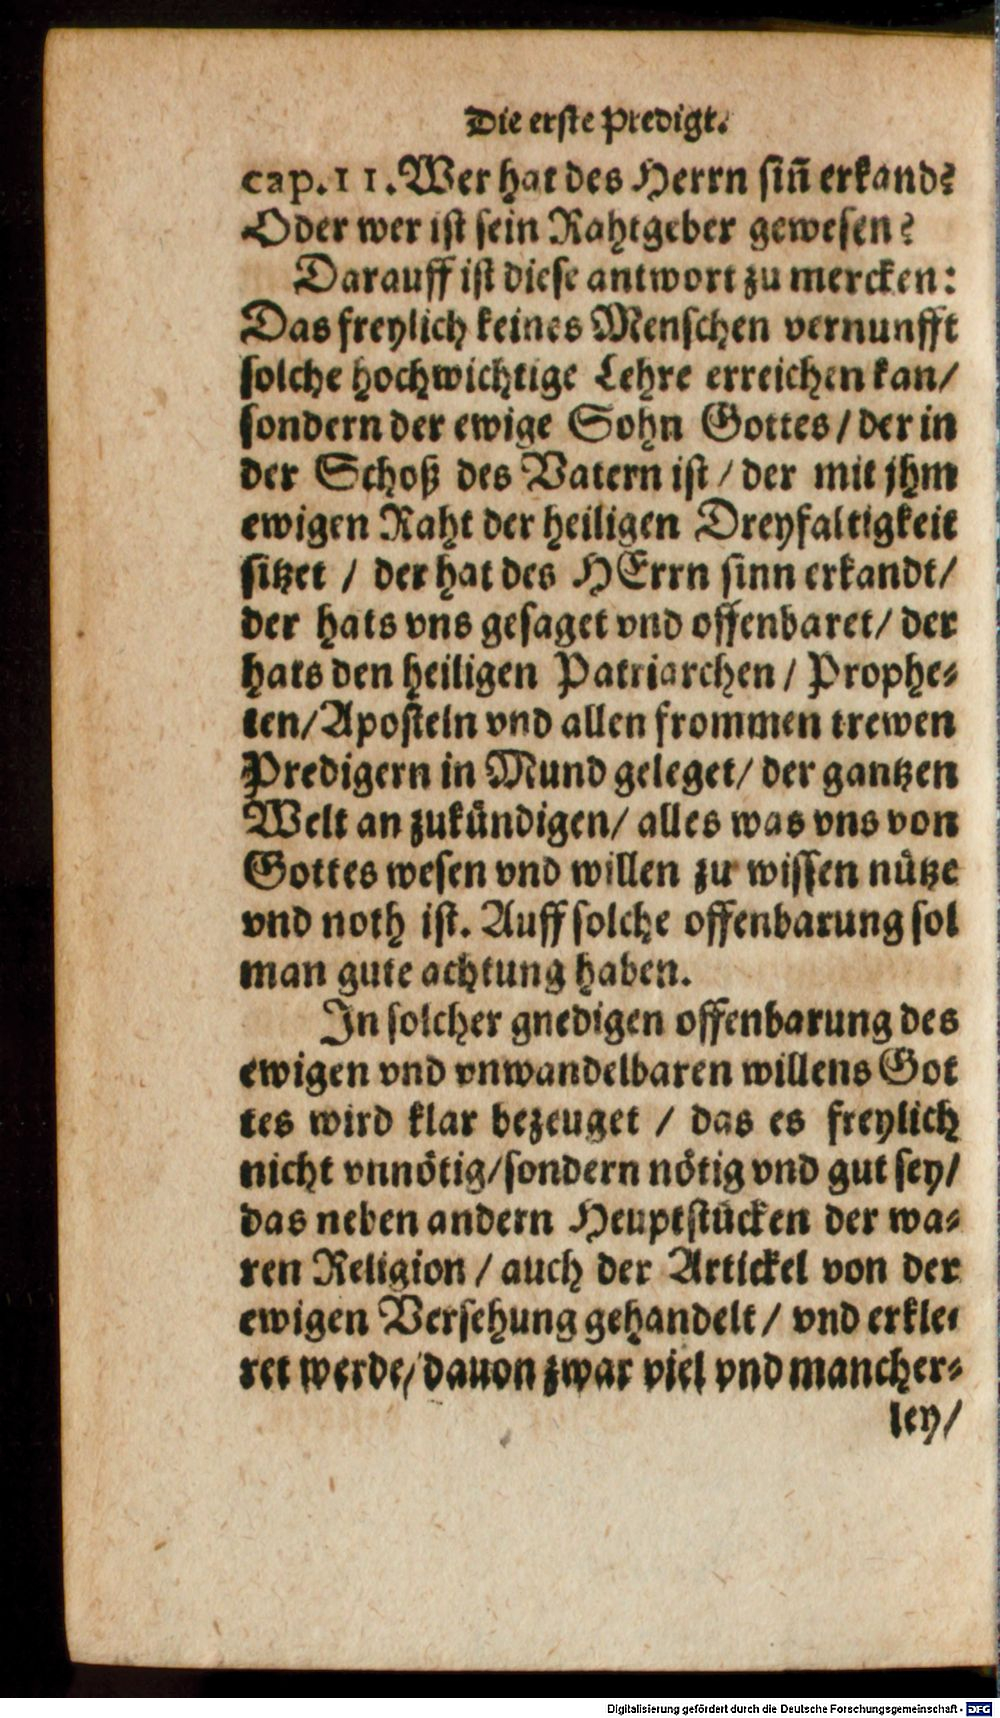 Die erste Predigt.
cap. 11. Wer hat des Herrn siñ erkand?
Oder wer ist sein Rahtgeber gewesen?
Darauff ist diese antwort zu mercken:
Das freylich keines Menschen vernunfft
solche hochwichtige Lehre erreichen kan/
sondern der ewige Sohn Gottes / der in
der Schoß des Vatern ist / der mit jhm
ewigen Raht der heiligen Dreyfaltigkeit
sitzet / der hat des HErrn sinn erkandt/
der hats vns gesaget vnd offenbaret/ der
hats den heiligen Patriarchen / Prophe-
ten/ Aposteln vnd allen frommen trewen
Predigern in Mund geleget/ der gantzen
Welt an zukündigen/ alles was vns von
Gottes wesen vnd willen zu wissen nütze
vnd noth ist. Auff solche offenbarung sol
man gute achtung haben.
In solcher gnedigen offenbarung des
ewigen vnd vnwandelbaren willens Got
tes wird klar bezeuget / das es freylich
nicht vnnötig/ sondern nötig vnd gut sey/
das neben andern Heuptstücken der wa-
ren Religion / auch der Artickel von der
ewigen Versehung gehandelt / vnd erkle-
ret werde/ dauon zwar viel vnd mancher-
ley/
Digitalisierung gefördert durch die Deutsche Forschungsgemeinschaft - DFG